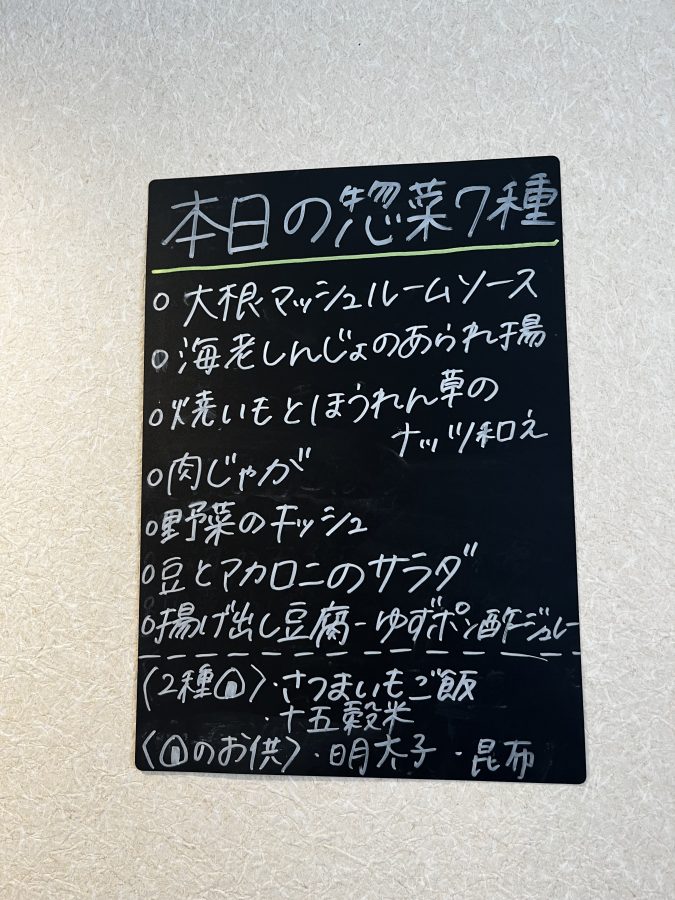 本日の惣菜7種
○ 大根マッシュルームソース
○ 海老しんじょのあられ揚
○ 焼いもとほうれん草の
ナッツ和え
○ 肉じゃが
○ 野菜のキッシュ
○ 豆とマカロニのサラダ
○ 揚げ出し豆腐-ゆずポン酢ジュレ-
〈2種🍙〉・さつまいもご飯
・十五穀米
〈🍙のお供〉・明太子・昆布